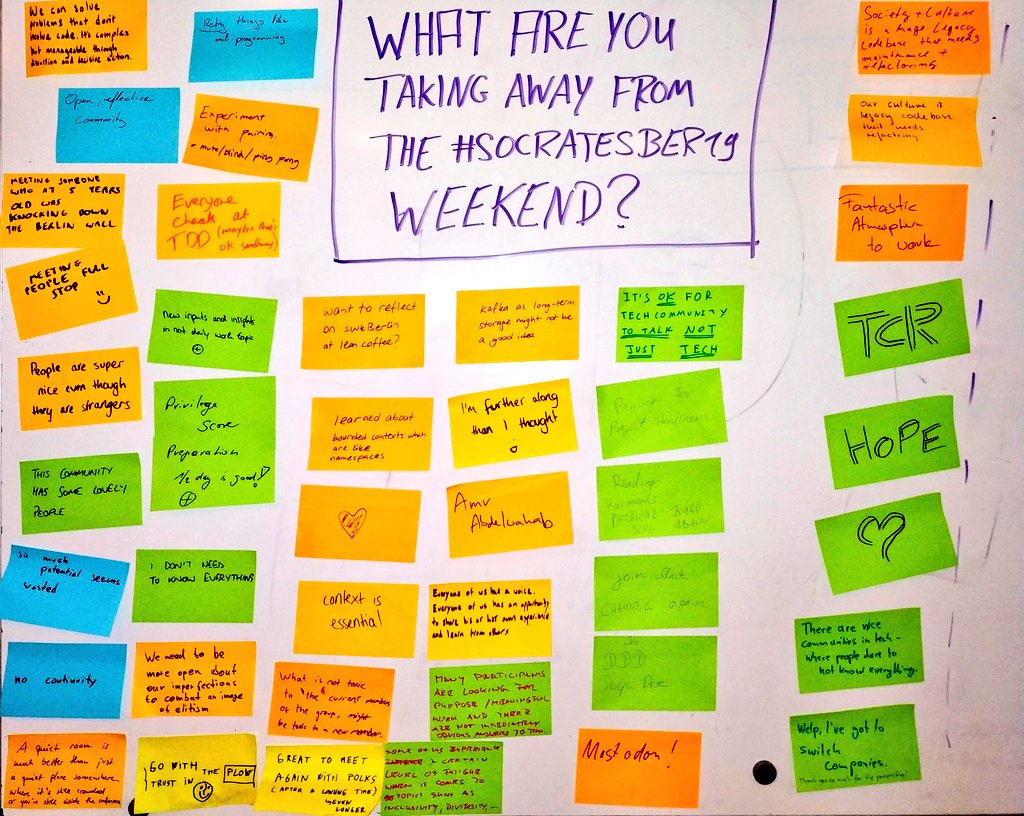 WHAT ARE YOU
TAKING AWAY FROM
THE #SOCRATESBER19
WEEKEND?
We can solve
problems that don't
involve code. It's complex
but manageable through
and decisive action.
Retry things like
mob programming
Open, reflective
Community
Experiment
with pairing.
mute/blind/ping pong
MEETING SOMEONE
WHO AT 5 YEARS
OLD WAS
KNOCKING DOWN
THE BERLIN WALL
Everyone
cheats at
TDD (maybe that's
ok sometimes)
MEETING
PEOPLE FULL
STOP
New inputs and insights
in not daily work topic
People are super
nice even though
they are strangers
Privilege
Score
Preparation
1/2 day is good!
THIS COMMUNITY
HAS SOME LOVELY
PEOPLE
So much
potential seems
wasted
I DON'T NEED
TO KNOW EVERYTHING
no continuity
We need to be
more open about
our imperfections
to combat an image
of elitism
A quiet room is
much better than just
a quiet place somewhere
where it's still crowded
or you're still inside the conference
GO WITH THE PLOW
TRUST IN
want to reflect
on swkBerlin
at lean coffee?
learned about
bounded contexts which
are like
namespaces
context is
essential
What is not toxic
to "the" current members
of the group, might
be toxic to a new member.
GREAT TO MEET
AGAIN WITH FOLKS
(AFTER A LONG TIME)
SEVEN
LONGER
kafka as long-term
storage might not be
a good idea
I'm further along
than I thought
Amr
Abdelwahab
Everyone of us has a voice.
Everyone of us has an opportunity
to share his or her own experience
and learn from others
MANY PARTICIPANTS
ARE LOOKING FOR
PURPOSE/MEANINGFUL
WORK AND THERE
ARE NOT IMMEDIATELY
OBVIOUS ANSWERS TO THIS.
SOME OF US EXPERIENCE
A CERTAIN
LEVEL OF FATIGUE
WHEN IT COMES TO
TOPICS SUCH AS
INCLUSIVITY, DIVERSITY, ...
IT'S OK FOR
TECH COMMUNITY
TO TALK NOT
JUST TECH
Pairing for
Project
Reading
PHYSICAL BOARD
BLOG AGAIN
Join Slack
CHANNEL again
DDD
Deep Dive
Mastodon!
Society + Culture
is a huge Legacy
Codebase that needs
maintenance +
refactoring
Our culture is
legacy codebase
that needs
refactoring
Fantastic
Atmosphere
to work
TCR
HOPE
There are nice
communities in tech -
where people dare to
not know everything.
Welp, I've got to
switch
companies.